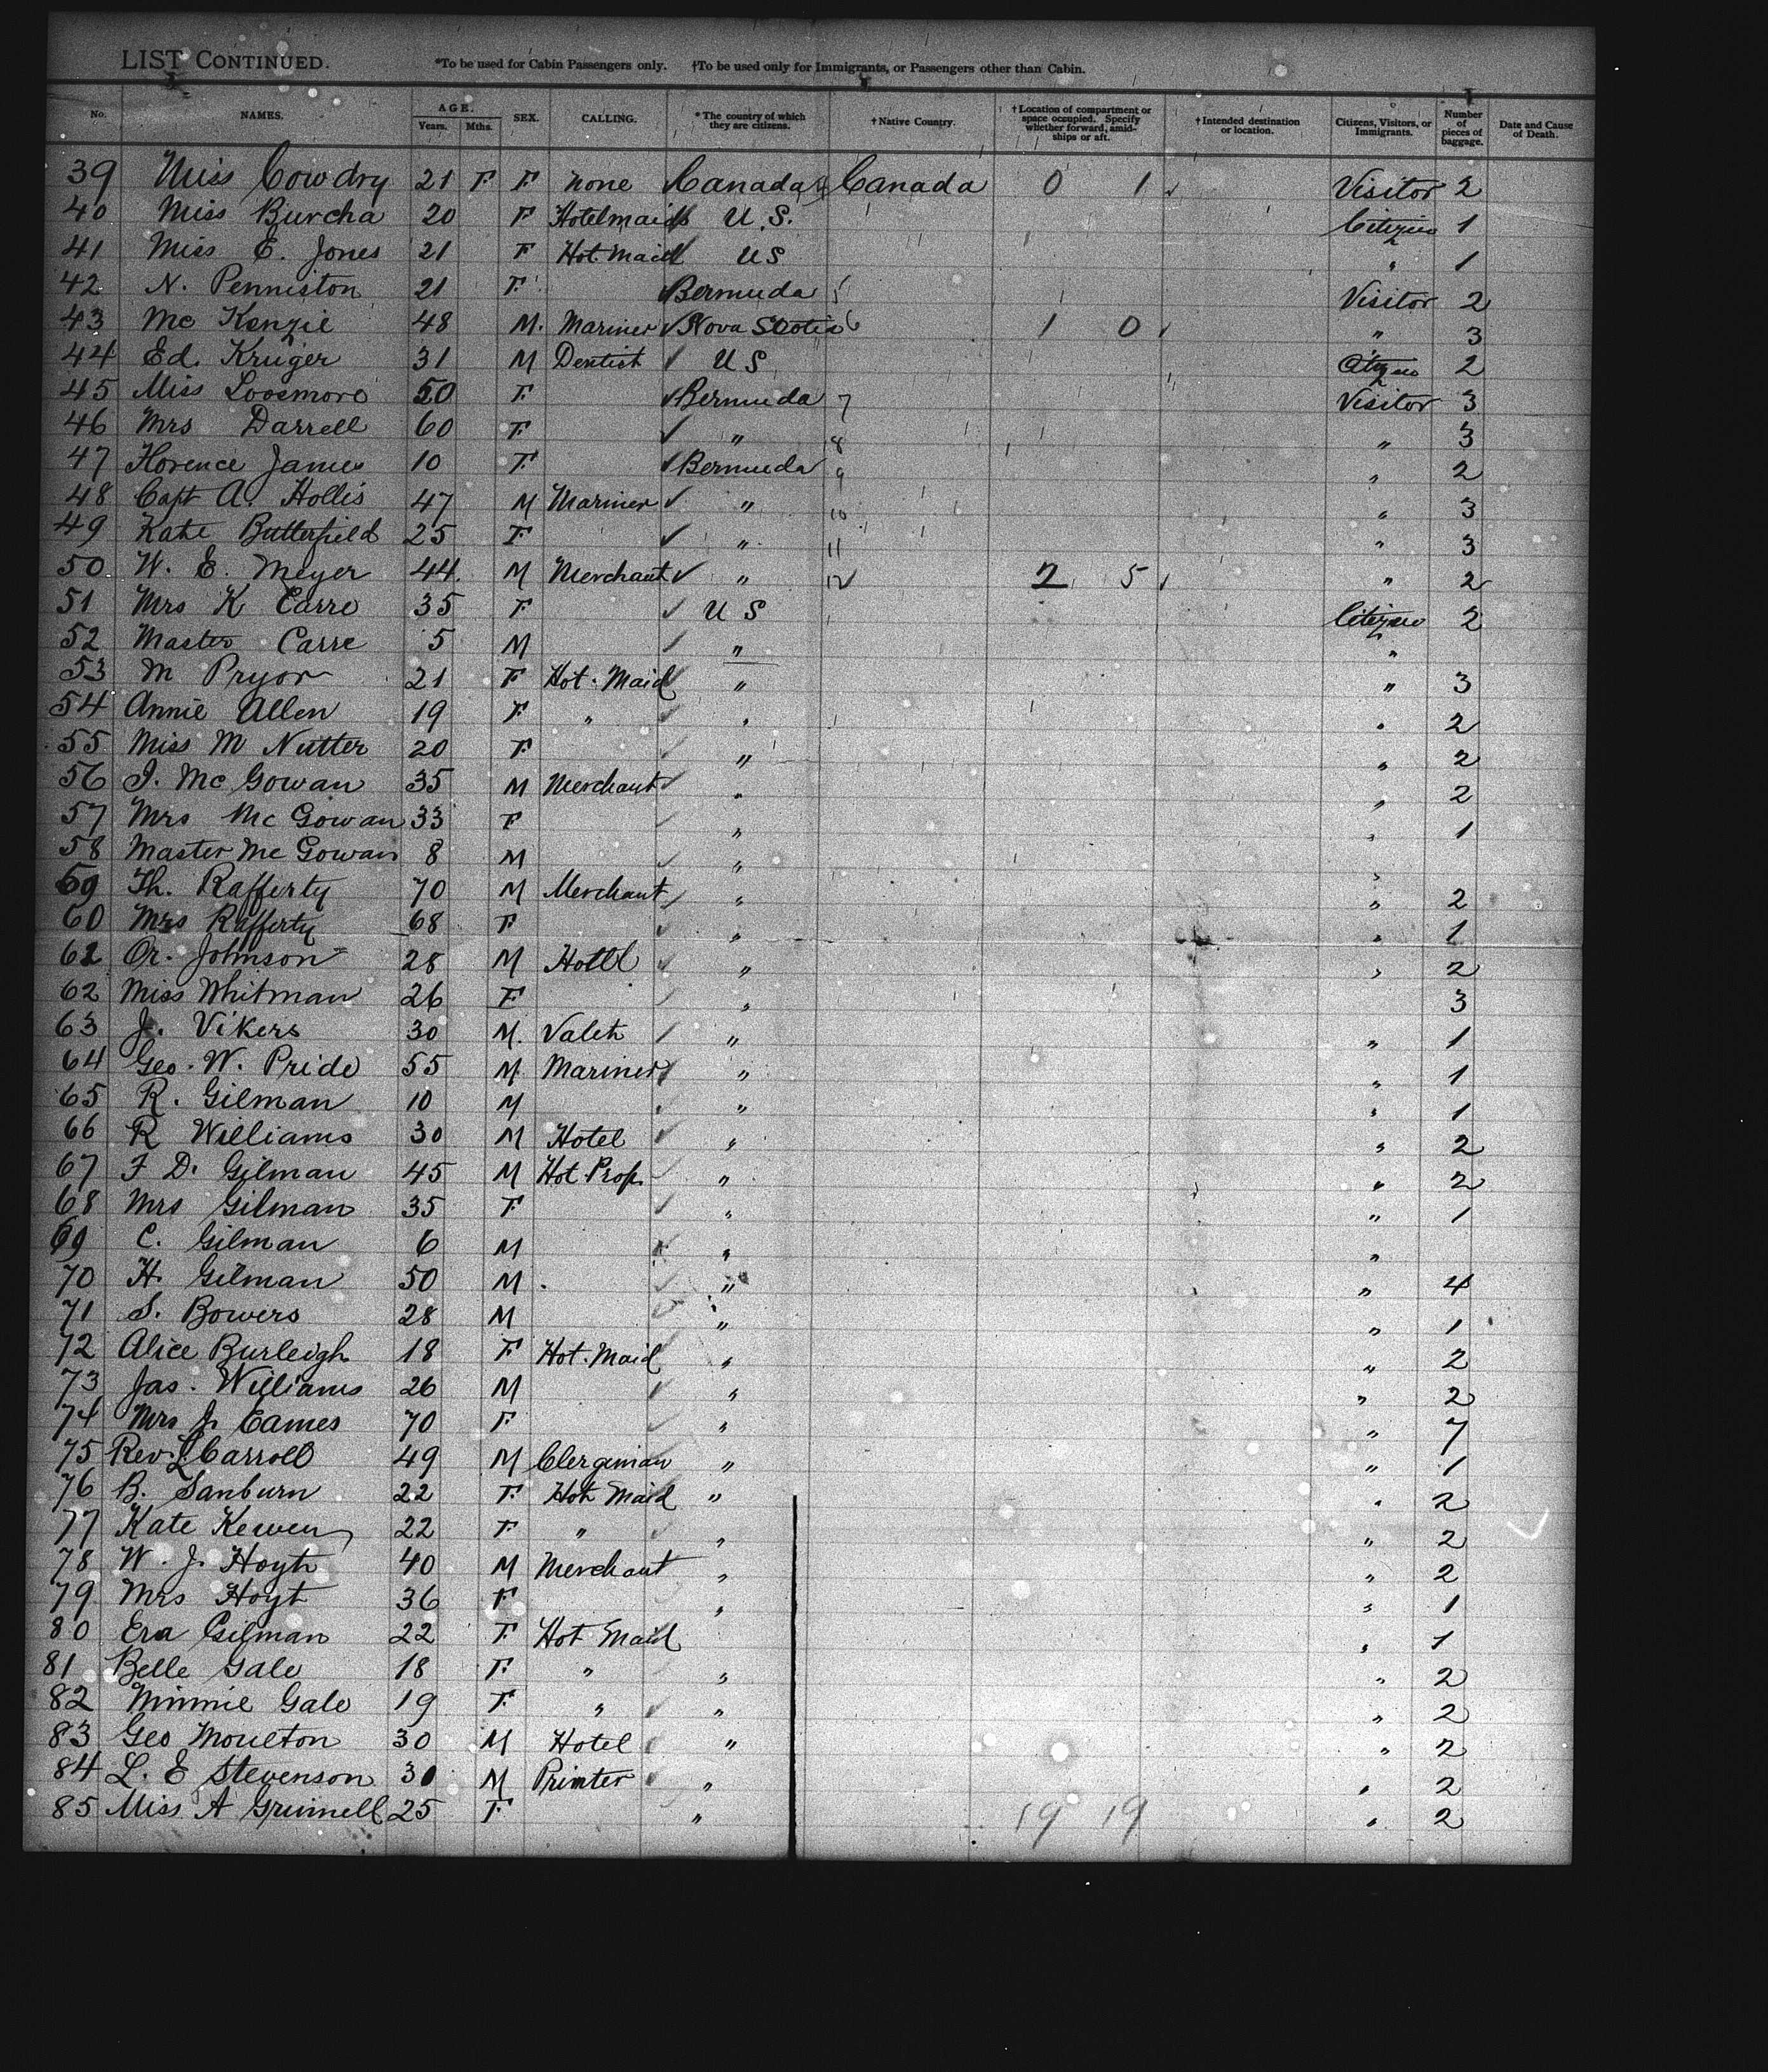 LIST CONTINUED. *To be used for Cabin Passengers only. †To be used only for Immigrants, or Passengers other than Cabin.
No. NAMES. AGE. Years. Mths. SEX. CALLING. *The country of which they are citizens. †Native Country. †Location of compartment or space occupied. Specify whether forward, amidships or aft. †Intended destination or location. Citizens, Visitors, or Immigrants. Number of pieces of baggage. Date and Cause of Death.
39 Miss Cowdry 21 F F None Canada Canada 0 1 Visitor 2
40 Miss Burcha 20 F Hotelmaid U.S. Citizen 1
41 Miss E. Jones 21 F Hot Maid US " 1
42 N. Penniston 21 F Bermuda 5 Visitor 2
43 Mc Kenzie 48 M. Mariner Nova Scotia 6 1 0 " 3
44 Ed. Kruger 31 M Dentist US Citizen 2
45 Miss Loosmore 50 F Bermuda 7 Visitor 3
46 Mrs Darrell 60 F " 8 " 3
47 Florence James 10 F Bermuda 9 " 2
48 Capt A. Hollis 47 M Mariner " 10 " 3
49 Kate Butterfield 25 F " 11 " 3
50 W. E. Meyer 44 M Merchant " 12 2 5 " 2
51 Mrs K Carre 35 F US Citizen 2
52 Master Carre 5 M " "
53 M Pryor 21 F Hot. Maid " " 3
54 Annie Allen 19 F " " " 2
55 Miss M Nutter 20 F " " 2
56 J. Mc Gowan 35 M Merchant " " 2
57 Mrs Mc Gowan 33 F " " 1
58 Master Mc Gowan 8 M " "
59 Th. Rafferty 70 M Merchant " " 2
60 Mrs Rafferty 68 F " " 1
61 Or. Johnson 28 M Hotel " " 2
62 Miss Whitman 26 F " 3
63 J. Vikers 30 M. Valet " " 1
64 Geo. W. Pride 55 M Mariner " " 1
65 R. Gilman 10 M " " 1
66 R Williams 30 M Hotel " " 2
67 F D. Gilman 45 M Hot. Prop. " " 2
68 Mrs Gilman 35 F " " 1
69 C. Gilman 6 M " "
70 H. Gilman 50 M. " " 4
71 S. Bowers 28 M " " 1
72 Alice Burleigh 18 F Hot. Maid " " 2
73 Jas. Williams 26 M " " 2
74 Mrs J. Eames 70 F " " 7
75 Rev. L Carroll 49 M Clergiman " " 1
76 B. Sanburn 22 F Hot Maid " " 2
77 Kate Kewen 22 F " " " 2
78 W. J. Hoyt 40 M Merchant " " 2
79 Mrs Hoyt 36 F " " 1
80 Era Gilman 22 F Hot Maid " 1
81 Belle Gale 18 F " " " 2
82 Minnie Gale 19 F " " " 2
83 Geo Moulton 30 M Hotel " " 2
84 L. E Stevenson 30 M Printer " " 2
85 Miss A Grinnell 25 F " 19 19 " 2